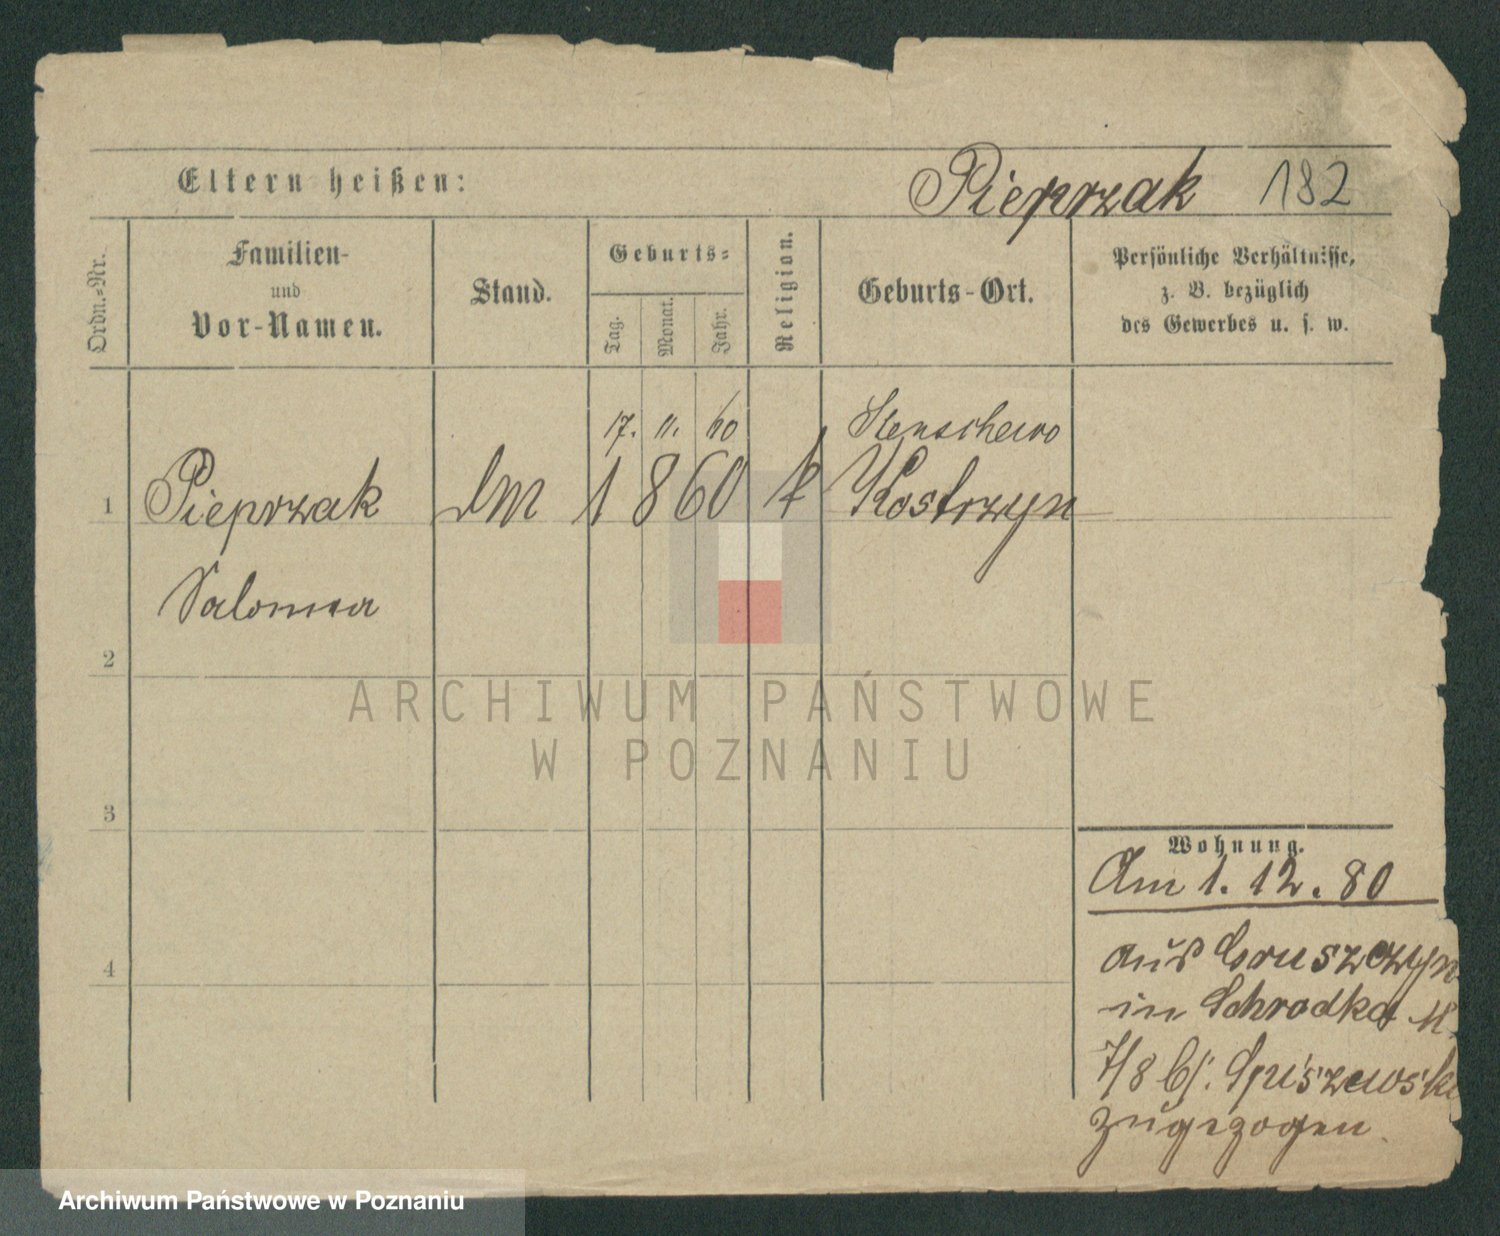 Eltern heißen:
Pieprzak 182
Ordn.-Nr.
Familien-
und
Vor-Namen.
Stand.
Geburts-
Tag.
Monat.
Jahr.
Religion.
Geburts-Ort.
Persönliche Verhältnisse,
z. B. bezüglich
des Gewerbes u. s. w.
17. 11. 60
1 Pieprzak dM 1860 k Kostrzyn
Salomea
2
3
4
Wohnung.
Am 1. 12. 80
aus Gruszczyn
in Schrodka M
7/8 bj.
zugezogen
ARCHIWUM PAŃSTWOWE
W POZNANIU
Archiwum Państwowe w Poznaniu